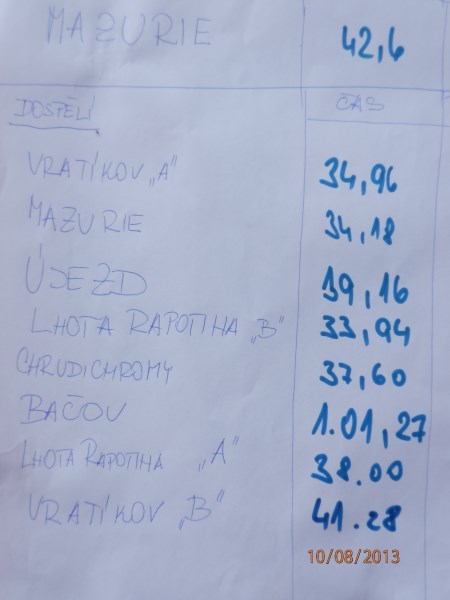 MAZURIE 42,6
DOSPĚLÍ ČAS
VRATÍKOV „A“ 34,96
MAZURIE 34,18
ÚJEZD 39,16
LHOTA RAPOTINA „B“ 33,94
CHRUDICHROMY 37,60
BAČOV 1.01,27
LHOTA RAPOTINA „A“ 38.00
VRATÍKOV „B“ 41.28
10/08/2013